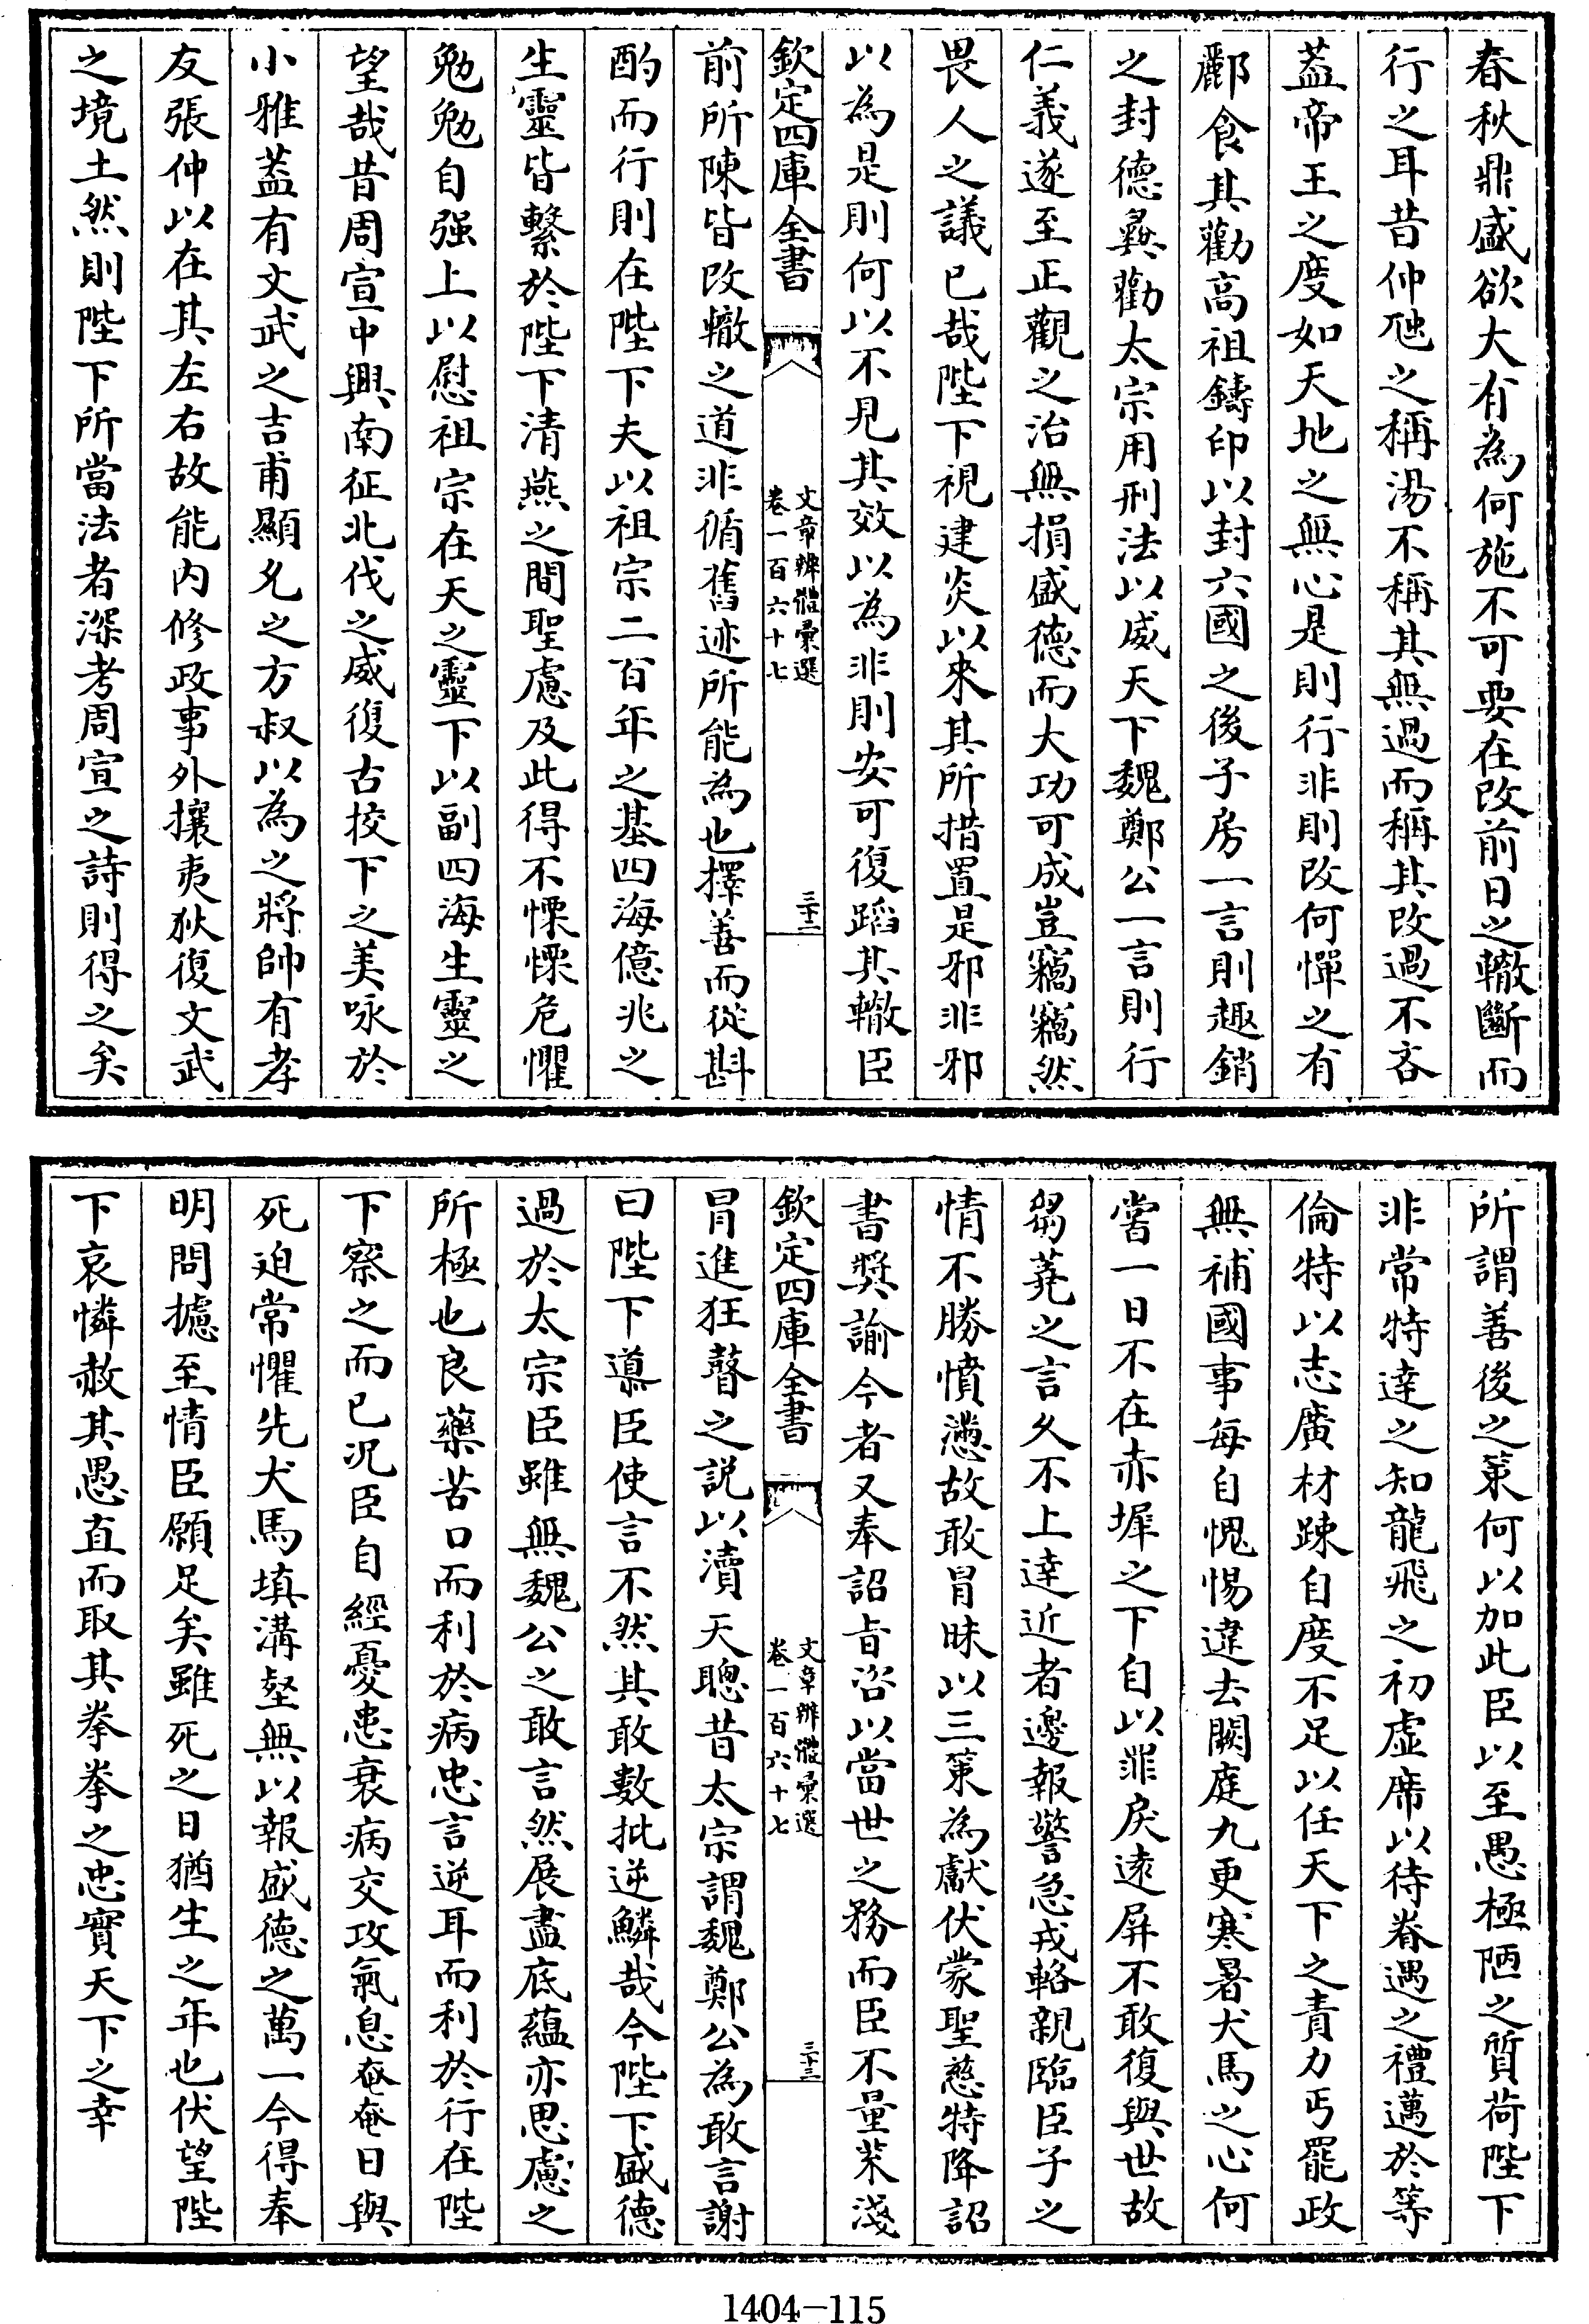 春秋鼎盛欲大有為何施不可要在改前日之轍斷而
行之耳昔仲虺之稱湯不稱其無過而稱其改過不吝
蓋帝王之度如天地之無心是則行非則改何憚之有
酈食其勸高祖鑄印以封六國之後子房一言則趣銷
之封德彝勸太宗用刑法以威天下魏鄭公一言則行
仁義遂至正觀之治無損盛德而大功可成豈竊竊然
畏人之議已哉陛下視建炎以來其所措置是邪非邪
以為是則何以不見其效以為非則安可復蹈其轍臣
欽定四庫全書
文章辨體彙選
卷一百六十七
三十二
前所陳皆改轍之道非循舊迹所能為也擇善而從斟
酌而行則在陛下夫以祖宗二百年之基四海億兆之
生靈皆繫於陛下清燕之間聖慮及此得不慄慄危懼
勉勉自强上以慰祖宗在天之靈下以副四海生靈之
望哉昔周宣中興南征北伐之威復古挍下之美咏於
小雅蓋有文武之吉甫顯允之方叔以為之將帥有孝
友張仲以在其左右故能內修政事外攘夷狄復文武
之境土然則陛下所當法者深考周宣之詩則得之矣
所謂善後之策何以加此臣以至愚極陋之質荷陛下
非常特達之知龍飛之初虛席以待眷遇之禮邁於等
倫特以志廣材踈自度不足以任天下之責力丐罷政
無補國事每自愧惕違去闕庭九更寒暑犬馬之心何
嘗一日不在赤墀之下自以罪戾逺屏不敢復與世故
芻蕘之言久不上達近者邊報警急戎輅親臨臣子之
情不勝憤懣故敢冒昧以三策為獻伏蒙聖慈特降詔
書奬諭今者又奉詔旨咨以當世之務而臣不量荒淺
欽定四庫全書
文章辨體彙選
卷一百六十七
三十三
冒進狂瞽之説以瀆天聰昔太宗謂魏鄭公為敢言謝
曰陛下導臣使言不然其敢數批逆鱗哉今陛下盛德
過於太宗臣雖無魏公之敢言然展盡底蘊亦思慮之
所極也良藥苦口而利於病忠言逆耳而利於行在陛
下察之而已况臣自經憂患衰病交攻氣息奄奄日與
死迫常懼先犬馬填溝壑無以報盛德之萬一今得奉
明問攄至情臣願足矣雖死之日猶生之年也伏望陛
下哀憐赦其愚直而取其拳拳之忠實天下之幸
1404-115